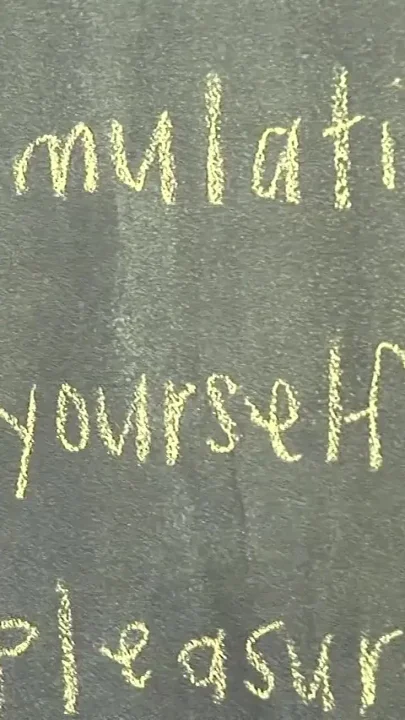 mulati
yourself
pleasur